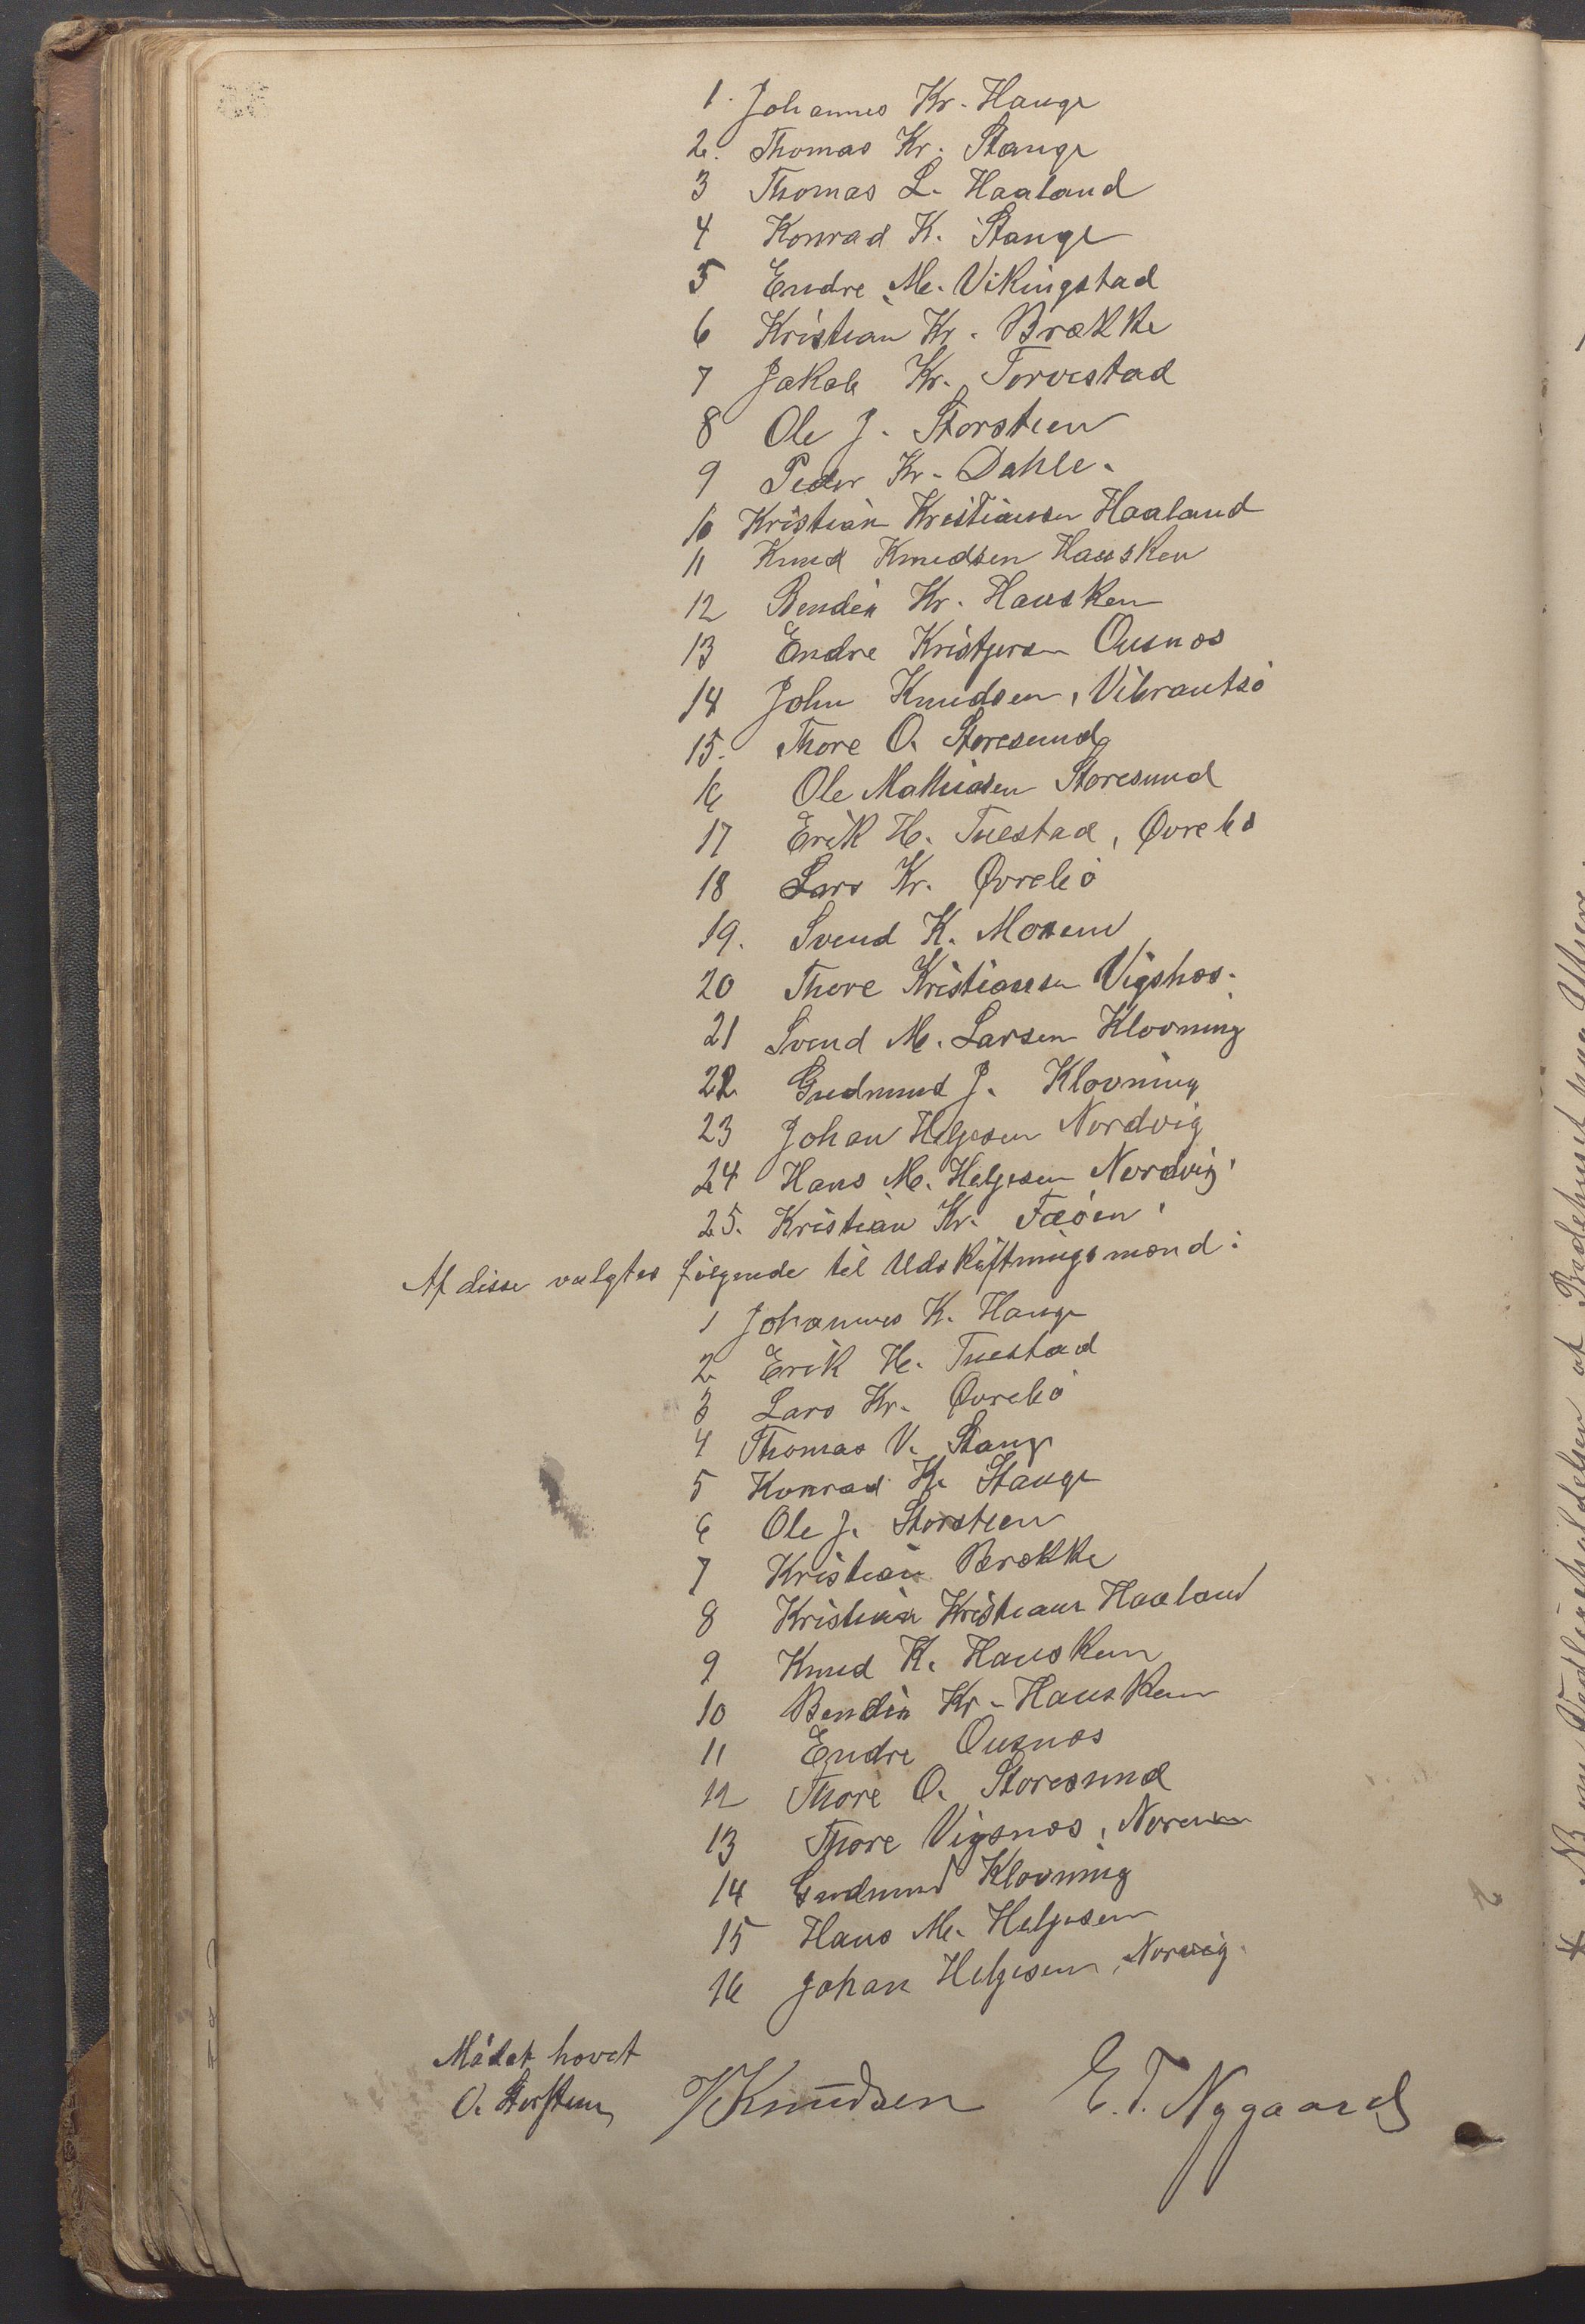 1. Johannes Kr. Hauge
2. Thomas Kr. Stange
3 Thomas L. Haaland
4 Konrad K. Stange
5 Endre M. Vikingstad
6 Kristian Kr. Brække
7 Jakob Kr. Torvestad
8 Ole J. Storsteen
9 Peder Kr. Dahle.
10 Kristian Kristiansen Haaland
11 Knud Knudsen Hausken
12 Bendix Kr. Hausken
13 Endre Kristjersen Ousnæs
14 John Knudsen, Vibrantsø
15. Thore O. Storesund
16 Ole Mathiasen Storesund
17 Erik H. Tuestad, Øvrebø
18 Lars Kr. Øvrebø
19. Svend K. Mosen
20 Thore Kristiansen Vigsnæs.
21 Svend M. Larsen Klovning
22 Gudmund J. Klovning
23 Johan Helgesen Nordvig
24 Hans M. Helgesen Nordvig
25. Kristian Kr. Fæøen
Af disse valgtes følgende til Udskiftningsmænd:
1 Johannes K. Hauge
2 Erik H. Tuestad
3 Lars Kr. Øvrebø
4 Thomas V. Stange
5 Konrad K. Stange
6 Ole J. Storsteen
7 Kristian Brække
8 Kristian Kristians Haaland
9 Knud K. Hausken
10 Bendix Kr. Hausken
11 Endre Ousnæs
12 Thore O. Storesund
13 Thore Vigsnæs,
14 Gudmund Klovning
15 Hans M. Helgesen
16 Johan Helgesen, Norvig.
Mødet hævet
O. Storsteen VKnudsen E. T. Nygaard